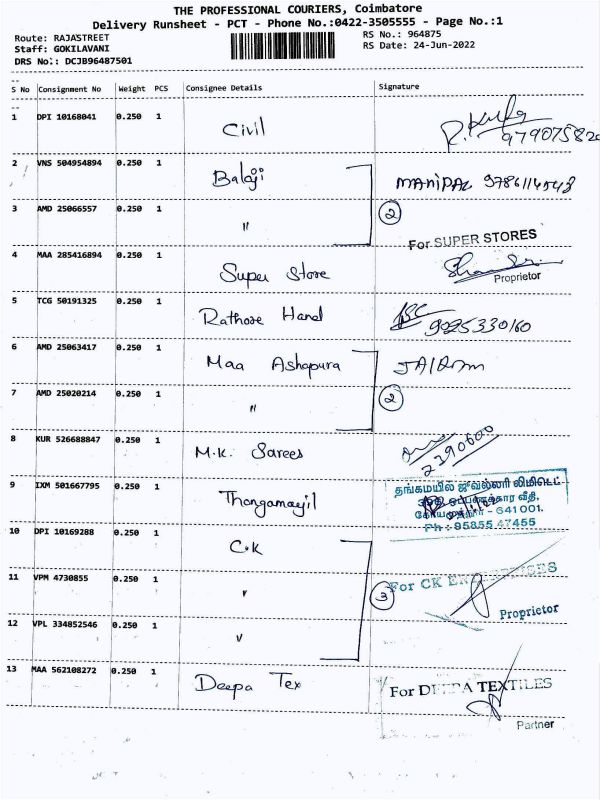 THE PROFESSIONAL COURIERS, Coimbatore
Delivery Runsheet - PCT - Phone No.:0422-3505555 - Page No.:1
Route: RAJASTREET
Staff: GOKILAVANI
DRS No.: DCJB96487501
RS No.: 964875
RS Date: 24-Jun-2022
S No Consignment No Weight PCS Consignee Details Signature
1 DPI 10168041 0.250 1 Civil
2 VNS 504954894 0.250 1 Balaji MANIPAL 9786114543
3 AMD 25066557 0.250 1 " 2
For SUPER STORES
4 MAA 285416894 0.250 1 Super Store
Proprietor
5 TCG 50191325 0.250 1 Rathore Hand 9025330160
6 AMD 25063417 0.250 1 Maa Ashapura JAIRAM
7 AMD 25020214 0.250 1 " 2
8 KUR 526688847 0.250 1 M.K. Sarees 2390600
9 IXM 501667795 0.250 1 Thangamayil
தங்கமயில் ஜுவல்லரி லிமிடெட்
வீதி,
கோயமுத்தூர் - 641 001.
Ph : 95855 47455
10 DPI 10169288 0.250 1 C.K
11 VPM 4730855 0.250 1 " 3
For CK ENTERPRISES
Proprietor
12 VPL 334852546 0.250 1 "
13 MAA 562108272 0.250 1 Deepa Tex
For DEEPA TEXTILES
Partner